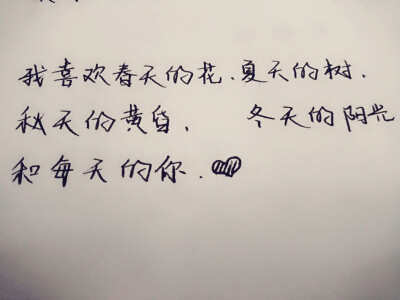 我喜欢春天的花、夏天的树、
秋天的黄昏、 冬天的阳光
和每天的你.